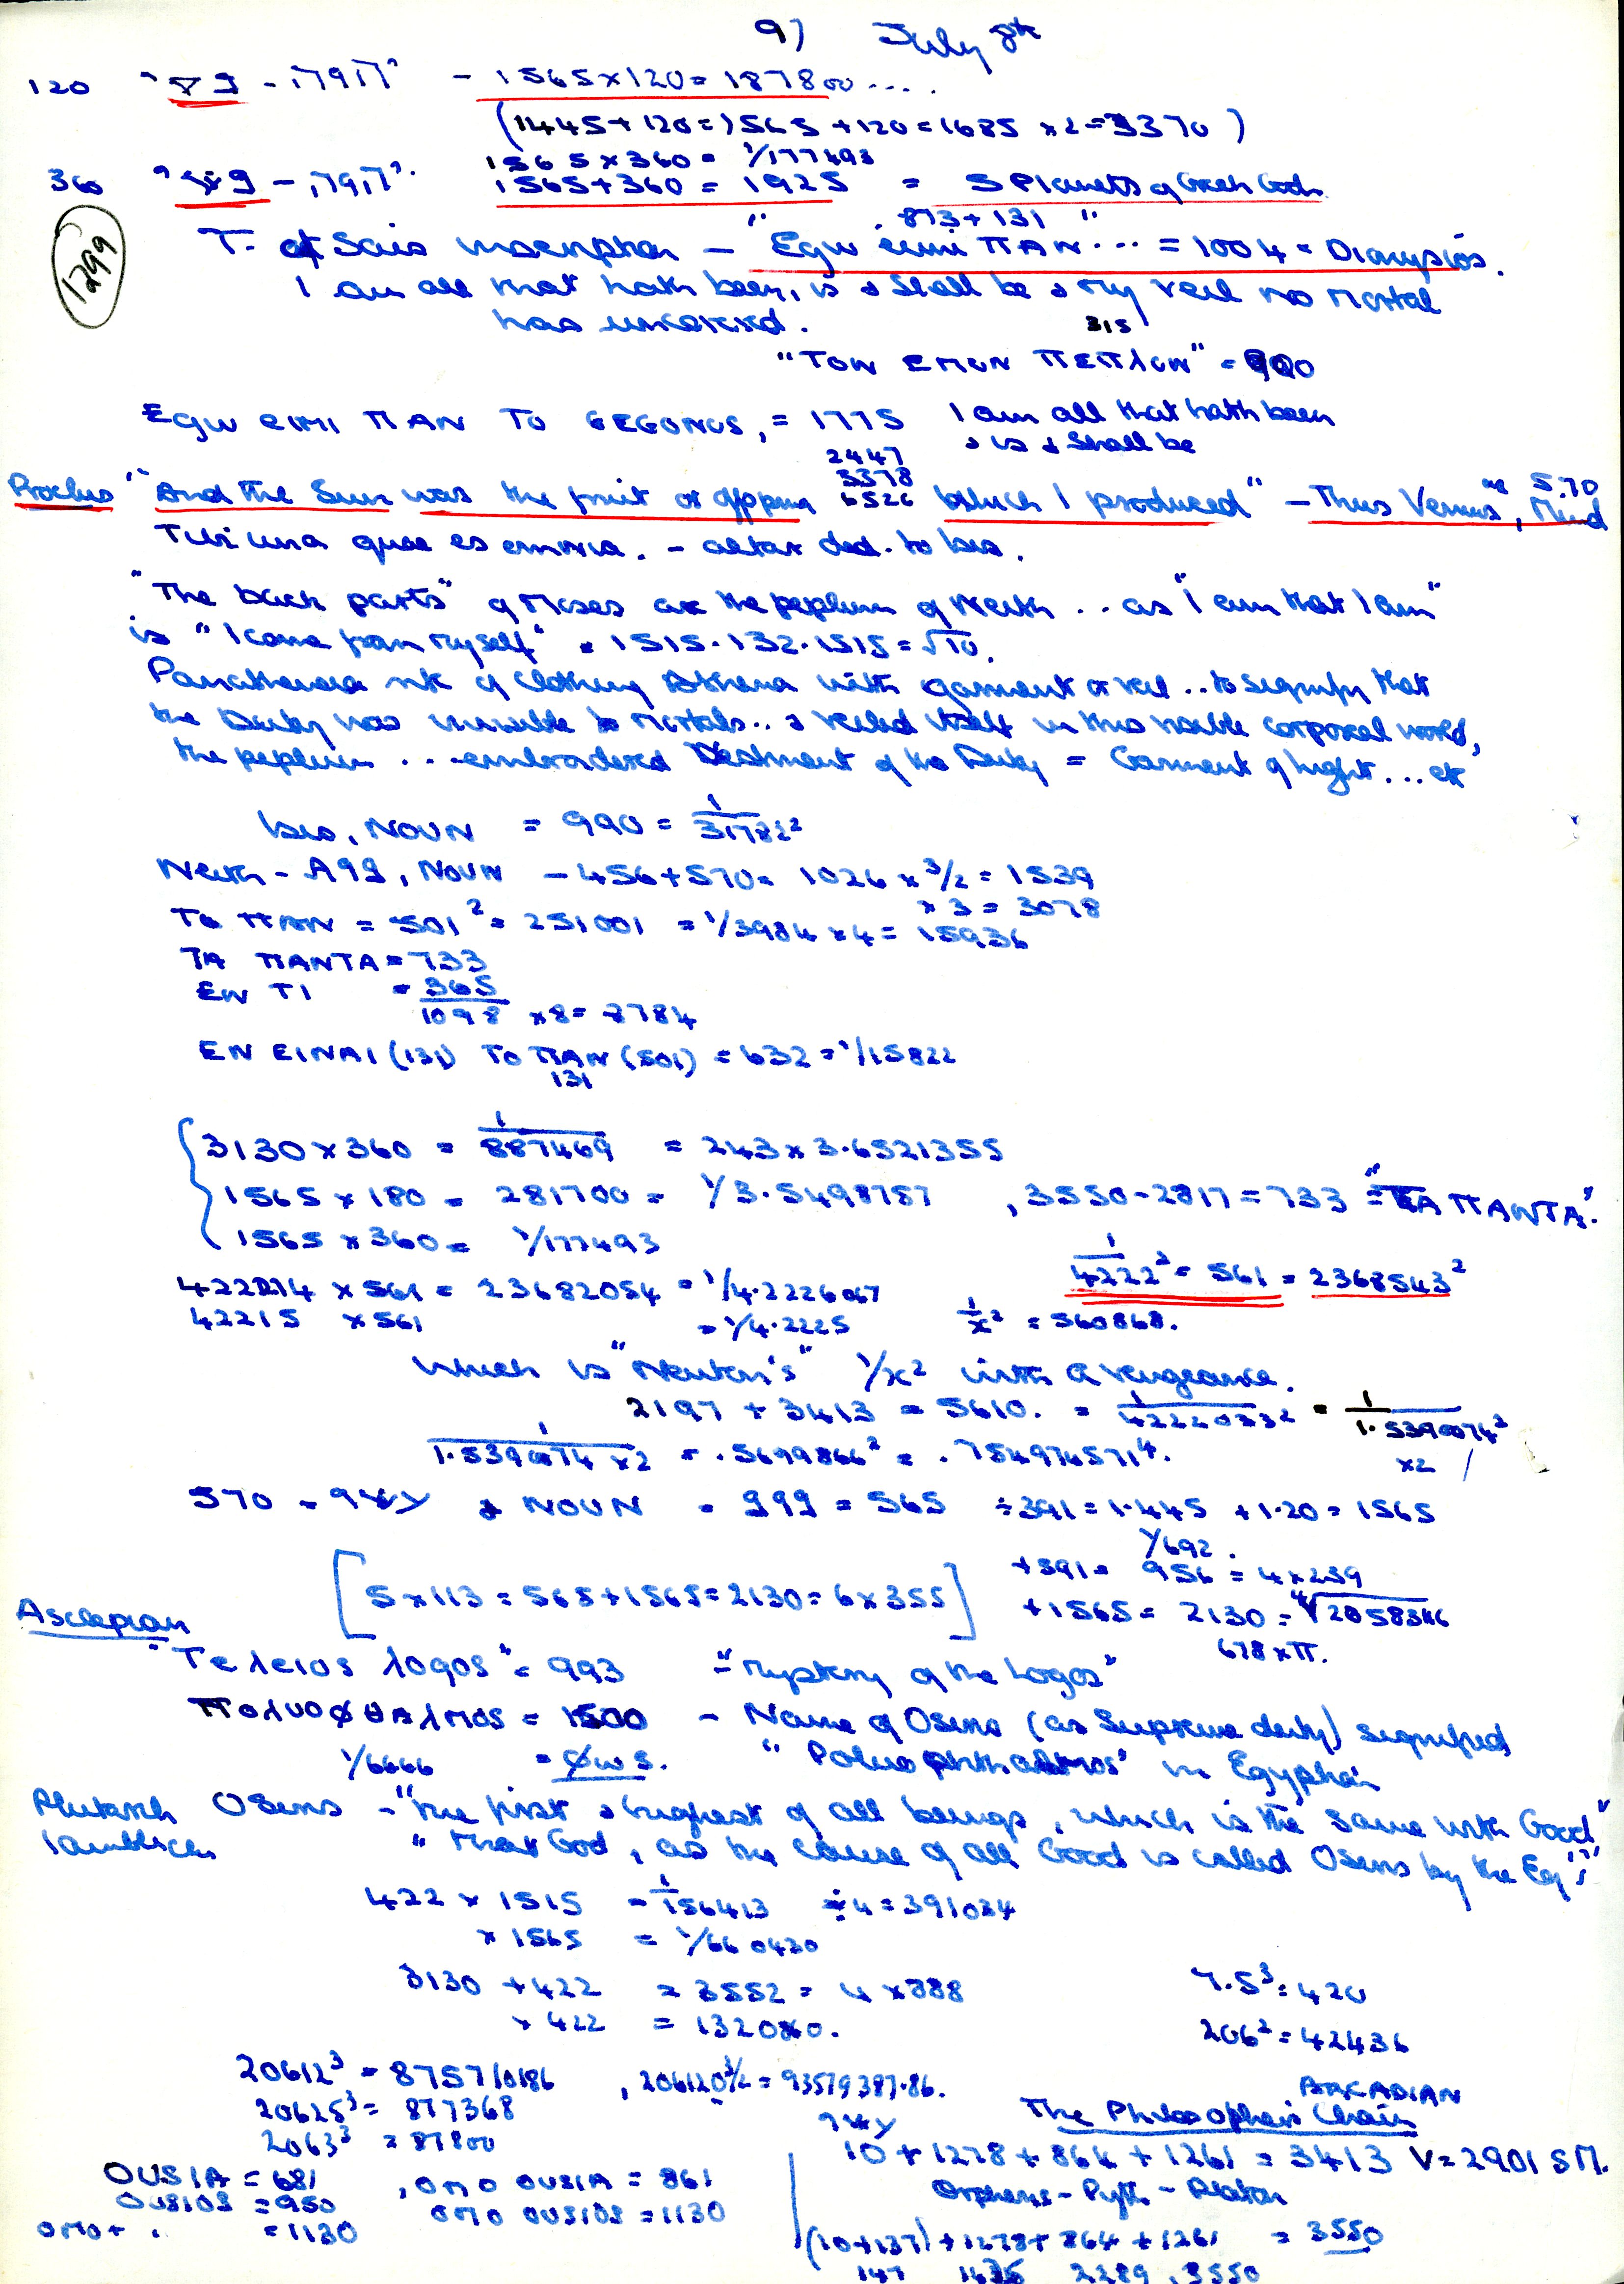 97 July 8th
120 - 1565×120=187800....
(1445+120=1565+120=1685 ×2=3370)
1565×360= 1/177493
360 1565+360 = 1925 = 5 Planets of Greek Gods
1299
873+131
T. of Sais inscription - "Egw eimi ΠAN... = 1004 = Dionysios.
I am all that hath been, is & shall be & my veil no mortal
has uncovered.
315
"TON EMON ΠEΠλON" = 900
EGW EIMI ΠAN TO GEGONOS, = 1775 I am all that hath been
& is & shall be
2447
3378
Proclus "And the Sun was the fruit or offspring 6526 which I produced" - Thus Venus, Mind 5.70
Tibi una quae es omnia. - altar ded. to Isis.
"The back parts" of Moses are the peplum of Neith .. as "I am that I am"
is "I come from myself" = 1515.132.1515=√10.
Panathenaea rite of clothing Athena with garment or veil .. to signify that
the Deity was invisible to mortals.. & veiled itself in this visible corporeal world,
the peplum ... embroidered Vestment of the Deity = Garment of light ... etc
Isis, NOUN = 990 = 1/31782²
Neith - , NOUN - 456+570= 1026 × 3/2 = 1539
× 3 = 3078
TO ΠAN = 501² = 251001 = 1/3984 ×4= 15936
TA ΠANTA = 733
EN TI = 365
1098 ×8= 8784
EN EINAI (131) TO ΠAN (501) = 632 = 1/15822
131
3130×360 = 1/887469 = 243×3.6521355
1565×180 = 281700 = 1/3.5498757 , 3550-2817=733 = "TA ΠANTA".
1565×360= 1/177493
1/4222² = 561 = 2368543²
422214 ×561 = 23682054 = 1/4.2226067
42215 ×561 = 1/4.2225 1/x² = 560868.
Which is "Newton's" 1/x² with a vengeance.
2197 + 3413 = 5610. = 1/ = 1/1.5390074²
×2
1/1.5390074 ×2 = .5699866² = .754974571⁴.
570 = & NOUN = 999 = 565 ÷391=1.445 +1.20=1565
1/692.
+391= 956 = 4×239
[5×113=565+1565=2130=6×355] +1565= 2130=⁴√2058346
678×π.
Asclepian
"Teλeios λogos" = 993 = "Mystery of the Logos"
ΠOλUOφθAλMOS = 1500 - Name of Osiris (as Supreme deity) signified
1/6666 = φws. "Poluophthalmos" in Egyptian
Plutarch Osiris - "the first & highest of all beings, which is the same with Good"
Iamblichus "that God, as the cause of all Good is called Osiris by the Eg's"
422 × 1515 = 1/156413 ÷4=391034
× 1565 = 1/660420
3130 +422 = 3552 = 4×888 7.5³=420
× 422 = 1320860. 206²=42436
20612³ = 875710186 , 206120^3/2 = 93579387.86.
20625³= 877368
2063³ = 87800
ARCADIAN
The Philosopher's Chain
10+1278+864+1261 = 3413 V=2901 SM.
OUSIA = 681 , OMO OUSIA = 861 Orpheus - Pyth - Platon
OUSIOS = 950 OMO OUSIOS = 1130
OMO+ . = 1130 (10+137)+1278+864+1261 = 3550
147 1425 2289 , 3550